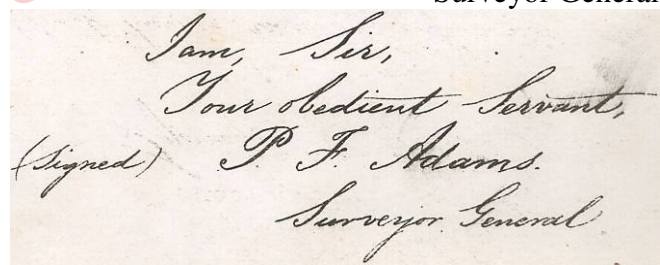 Surveyor General
I am, Sir,
Your obedient Servant,
(Signed) P. F. Adams.
Surveyor General